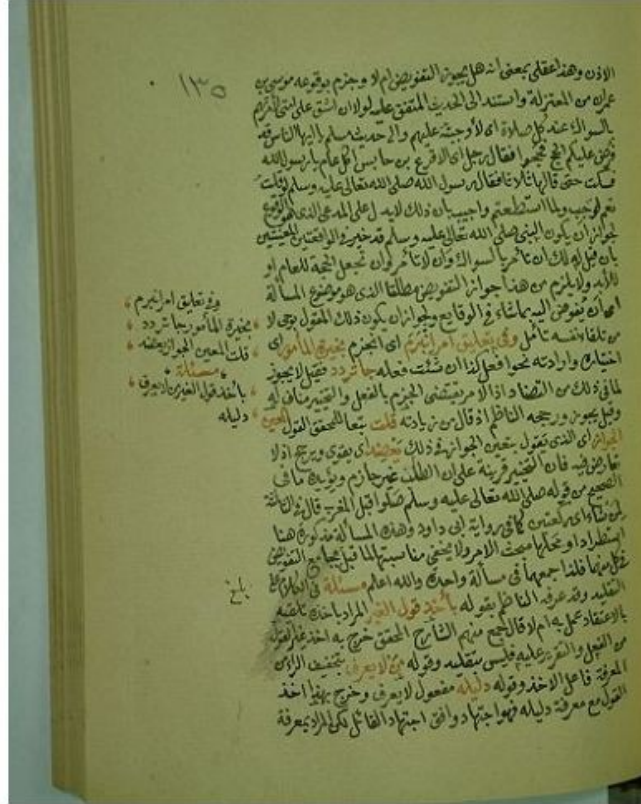 ١٣٥
الاذن وهذا عقلي بمعنى انه هل يجوز التفويض ام لا وجزم بوقوعه موسى بن
عمران من المعتزلة واستند الى الحديث المتفق عليه لولا ان اشق على امتي لامرتهم
بالسواك عند كل صلاة اى لأوجبته عليهم والى حديث مسلم يا ايها الناس قد
فرض عليكم الحج فحجوا فقال رجل اى الاقرع بن حابس اكل عام يا رسول الله
فسكت حتى قالها ثلاثا فقال رسول الله صلى الله تعالى عليه وسلم لو قلت
نعم لوجبت ولما استطعتم واجيب بان ذلك لا يدل على المدعى الذى هو الوقوع
لجواز ان يكون النبى صلى الله تعالى عليه وسلم قد خير فى الواقعتين المعينتين
بان قيل له لك ان تأمر بالسواك وان لا تأمر وان تجعل الحجة للعام او
للابد ولا يلزم من هذا جواز التفويض مطلقا الذى هو موضوع المسألة
اى ان يفوض اليه ما شاء فى الوقايع ولجواز ان يكون ذلك المقول بوحى لا
من تلقاء نفسه تأمل وفى تعليق امر انبرم اى انجزم بخيرة المأمور اى
اختياره وارادته نحو افعل كذا ان شئت فعله جا تردد فقيل لا يجوز
لما فى ذلك من التضاد اذ الامر يقتضى الجزم بالفعل والتخيير مناف له
وقيل يجوز ورجحه الناظم اذ قال من زيادته قلت تبعا للمحقق القول المعين
الجواز اى الذى نقول بتعين الجواز فى ذلك يعضده اى يقوى ويرجح اذ لا
تعارض فيه فان التخيير قرينة على ان الطلب غير جازم ويؤيده ما فى
الصحيح من قوله صلى الله تعالى عليه وسلم صلوا قبل المغرب قال فى الثالثة
لمن شاء اى ركعتين كما فى رواية ابى داود وهذه المسألة مذكورة هنا
استطرادا ومحلها مبحث الامر ولا يخفى مناسبتها لما قبل بجامع التفويض
فى كل منهما فلذا جمعهما فى مسألة واحدة والله اعلم مسئلة فى الكلام على
التقليد وقد عرفه الناظم بقوله بأخذ قول الغير المراد باخذه تلقيه
بالاعتقاد عمل به ام لا قال جمع منهم الشارح المحقق خرج به اخذ غير القول
من الفعل والتقرير عليه فليس بتقليد وقوله مع لا يعرف بتخفيف الراء من
المعرفة فاعل الاخذ وقوله دليله مفعول لا يعرف وخرج بهذا اخذ
القول مع معرفة دليله فهو اجتهاد وافق اجتهاد القائل لكن المراد بمعرفة
وفى تعليق امر انبرم
بخيرة المأمور جا تردد
قلت المعين الجواز يعضده
مسئلة
بأخذ قول الغير لا يعرف
دليله
بلغ